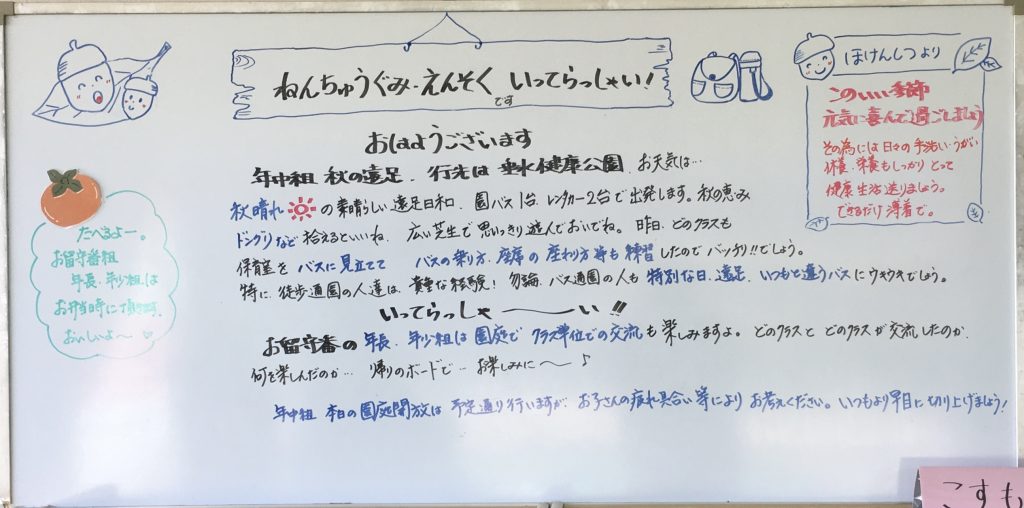 ねんちゅうぐみ・えんそく いってらっしゃい!
です
おはようございます
年中組 秋の遠足. 行先は 垂水健康公園. お天気は…
秋晴れ の素晴らしい遠足日和. 園バス1台 レンタカー2台で出発します。秋の恵み
ドングリなど 拾えるといいね. 広い芝生で思いっきり遊んでおいでね。昨日. どのクラスも
保育室を バスに見立てて バスの乗り方. 座席の座わり方等も練習したのでバッチリ!!でしょう。
特に. 徒歩通園の人達は. 貴重な経験! 勿論. バス通園の人も 特別な日. 遠足. いつもと違うバスにウキウキでしょう。
いってらっしゃ〜い!!
お留守番の年長. 年少組は園庭で クラス単位での交流も楽しみますよ。どのクラスと どのクラスが交流したのか.
何を楽しんだのか… 帰りのボードで… お楽しみに〜♪
年中組 本日の園庭開放は 予定通り行いますが. お子さんの疲れ具合い等により お考えください。いつもより早目に切り上げましょう!
たべるよー。
お留守番組
年長. 年少組は
お弁当時に頂きます.
おいしいよ〜♡
ほけんしつより
このいい季節
元気に喜んで過ごしましょう
その為には日々の手洗い.うがい
休養. 栄養もしっかりとって
健康生活送りましょう。
できるだけ薄着で。
こすも